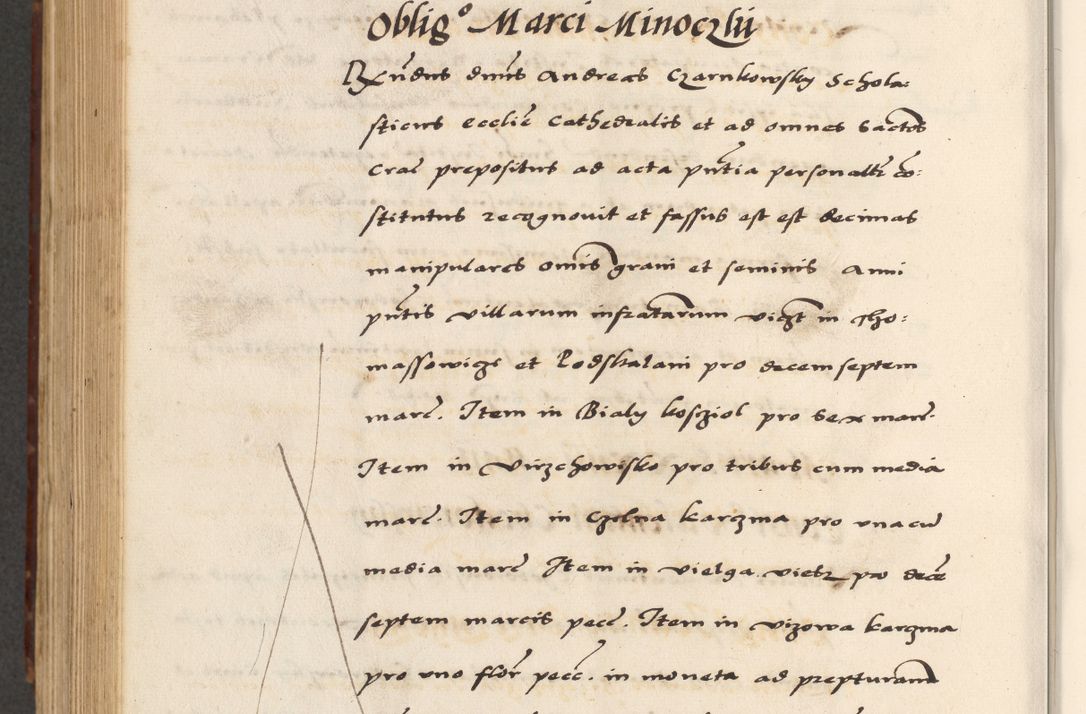 Oblig⁰ Marci Minoczky
Rxn̄dus dnūs Andreas Czarnkowsky Schola:
sticus ecclīe Cathedralis et ad omnes Sactōs
Crac̄ prepositus ad acta pn̄tia personaltr̄ cō:
stitutus recognouit et fassus est est decimas
manipulares omīs grani et seminis Anni
pn̄tis villarum infratārum vicz̄t in Tho:
massowicze et Podskalani pro decem septem
marc̄. Item in Bialy koscziol pro sex marc̄.
Item in Virzchowisko pro tribus cum media
marc̄. Item in Czelna karczma pro una cū
media marc̄ Item in Vielga vies pro decē
septem marcis pecc̄. Item in Vizowa karczma
pro uno flōr pecc̄. in moneta ad